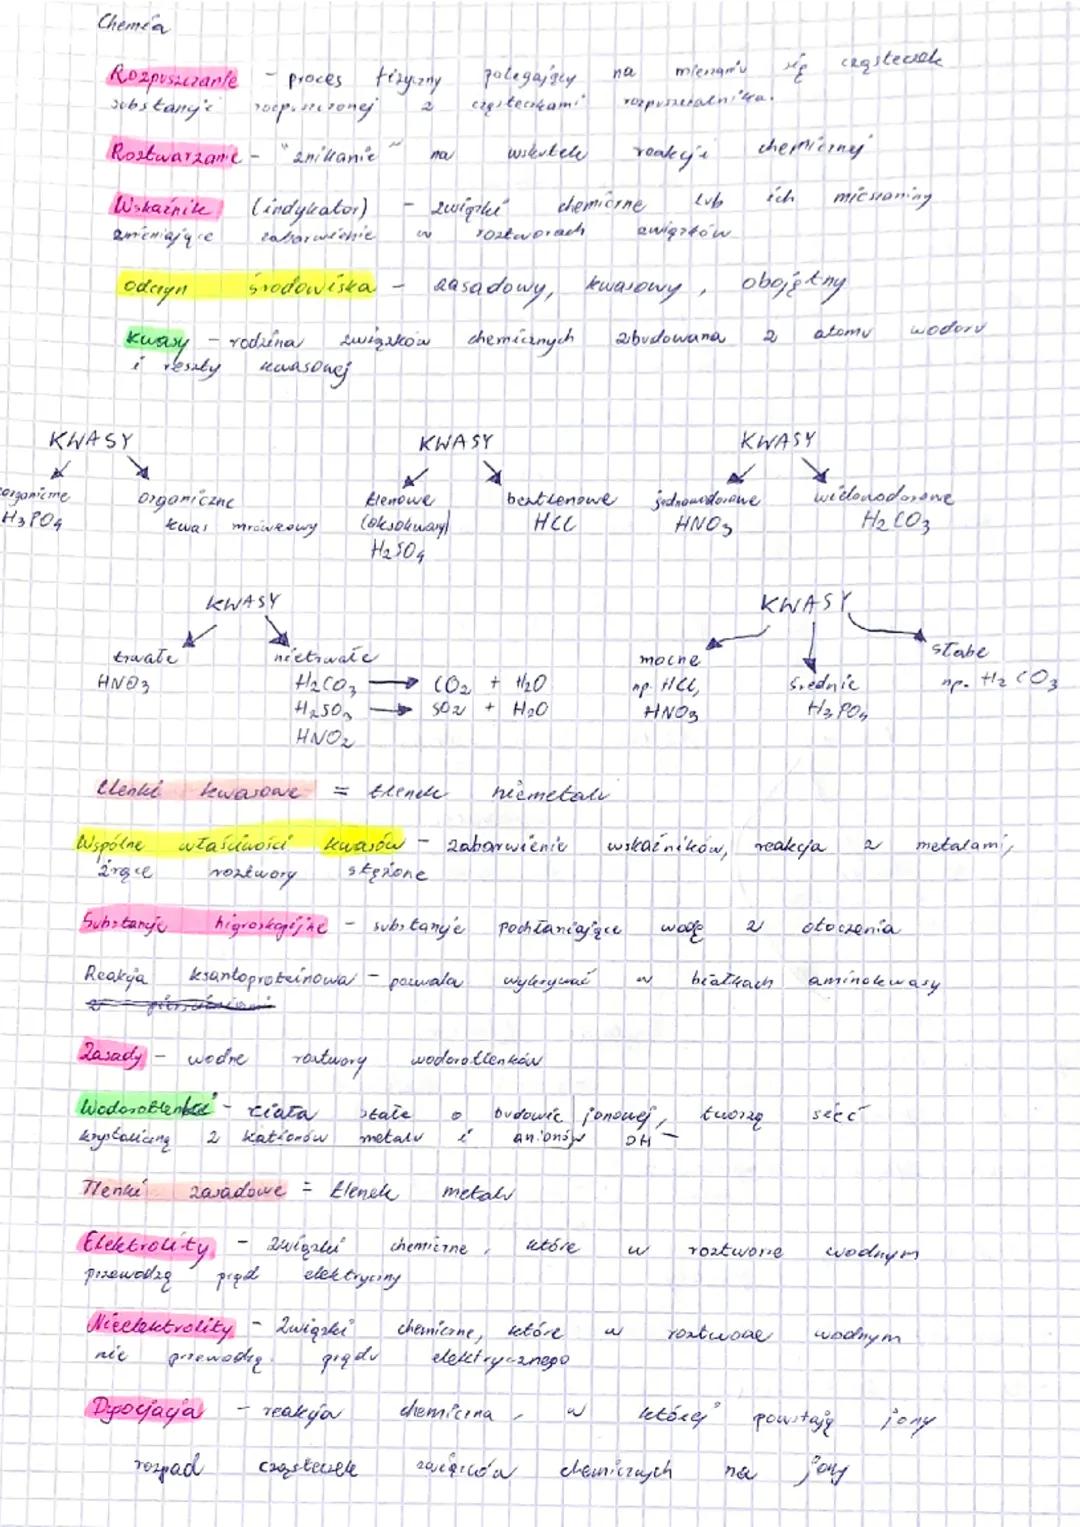 Chemia
Rozpuszczanie - proces fizyczny polegający na mieszaniu się cząsteczek
substancji rozpuszczonej z cząsteczkami rozpuszczalnika.
Roztwarzanie - "znikanie" na wskutek reakcji chemicznej
Wskaźniki (indykator) - związki chemiczne lub ich mieszaniny
zmieniające zabarwienie w roztworach związków
odczyn środowiska - zasadowy, kwasowy, obojętny
Kwasy - rodzina związków chemicznych zbudowana z atomu wodoru
i reszty kwasowej
KWASY KWASY KWASY
organiczne tlenowe beztlenowe jednowodorowe wielowodorowe
H3PO4 kwas mrówkowy (oksokwasy) HCl HNO3 H2CO3
H2SO4
KWASY KWASY
trwałe nietrwałe mocne słabe
HNO3 H2CO3 → CO2 + H2O np. HCl, średnie np. H2CO3
H2SO3 → SO2 + H2O HNO3 H3PO4
HNO2
tlenki kwasowe = tlenek niemetalu
Wspólne właściwości kwasów - zabarwienie wskaźników, reakcja z metalami,
żrące roztwory stężone
Substancje higroskopijne - substancje pochłaniające wodę z otoczenia
Reakcja ksantoproteinowa - pozwala wykrywać w białkach aminokwasy
Zasady - wodne roztwory wodorotlenków
Wodorotlenki - ciała stałe o budowie jonowej, tworzą sieć
krystaliczną z kationów metalu i anionów OH⁻
Tlenki zasadowe = tlenek metalu
Elektrolity - związki chemiczne, które w roztworze wodnym
przewodzą prąd elektryczny
Nieelektrolity - związki chemiczne, które w roztworze wodnym
nie przewodzą prądu elektrycznego
Dysocjacja - reakcja chemiczna, w której powstają jony
rozpad cząsteczek związków chemicznych na jony